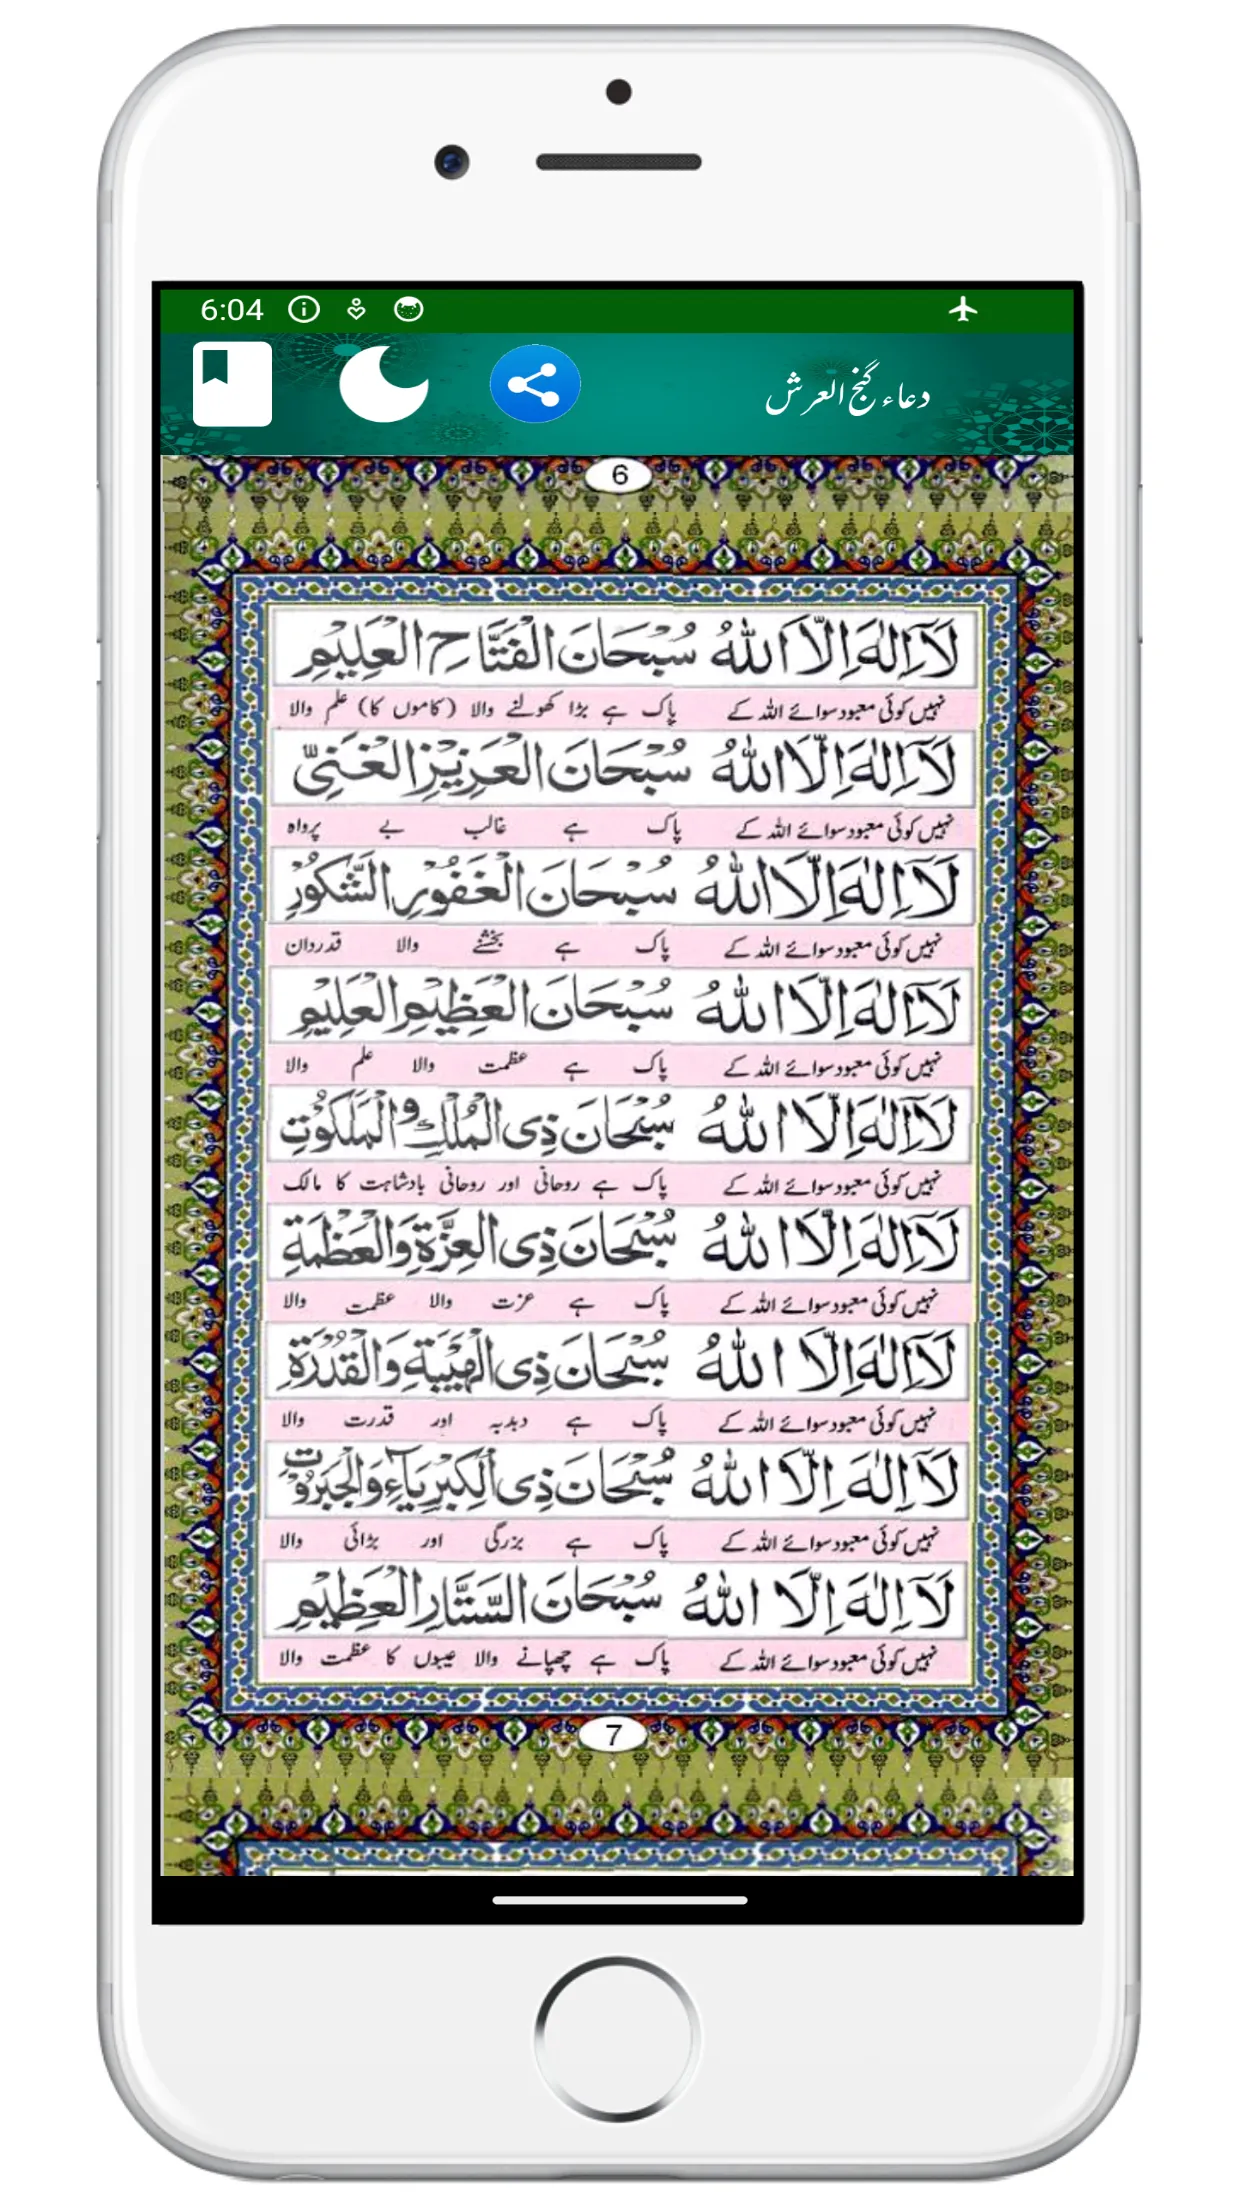 6:04
دعاء گنج العرش
6
لَآ اِلٰهَ اِلَّا اللّٰهُ سُبْحَانَ الْفَتَّاحِ الْعَلِيْمِ
نہیں کوئی معبود سوائے اللہ کے پاک ہے بڑا کھولنے والا (کاموں کا) علم والا
لَآ اِلٰهَ اِلَّا اللّٰهُ سُبْحَانَ الْعَزِيْزِ الْغَنِىِّ
نہیں کوئی معبود سوائے اللہ کے پاک ہے غالب بے پرواہ
لَآ اِلٰهَ اِلَّا اللّٰهُ سُبْحَانَ الْغَفُوْرِ الشَّكُوْرِ
نہیں کوئی معبود سوائے اللہ کے پاک ہے بخشنے والا قدردان
لَآ اِلٰهَ اِلَّا اللّٰهُ سُبْحَانَ الْعَظِيْمِ الْعَلِيْمِ
نہیں کوئی معبود سوائے اللہ کے پاک ہے عظمت والا علم والا
لَآ اِلٰهَ اِلَّا اللّٰهُ سُبْحَانَ ذِى الْمُلْكِ وَالْمَلَكُوْتِ
نہیں کوئی معبود سوائے اللہ کے پاک ہے روحانی اور روحانی بادشاہت کا مالک
لَآ اِلٰهَ اِلَّا اللّٰهُ سُبْحَانَ ذِى الْعِزَّةِ وَالْعَظْمَةِ
نہیں کوئی معبود سوائے اللہ کے پاک ہے عزت والا عظمت والا
لَآ اِلٰهَ اِلَّا اللّٰهُ سُبْحَانَ ذِى الْهَيْبَةِ وَالْقُدْرَةِ
نہیں کوئی معبود سوائے اللہ کے پاک ہے دبدبہ اور قدرت والا
لَآ اِلٰهَ اِلَّا اللّٰهُ سُبْحَانَ ذِى الْكِبْرِيَآءِ وَالْجَبَرُوْتِ
نہیں کوئی معبود سوائے اللہ کے پاک ہے بزرگی اور بڑائی والا
لَآ اِلٰهَ اِلَّا اللّٰهُ سُبْحَانَ السَّتَّارِ الْعَظِيْمِ
نہیں کوئی معبود سوائے اللہ کے پاک ہے چھپانے والا عیبوں کا عظمت والا
7